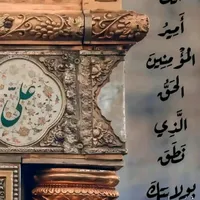 أَمِيرُ
المُؤْمِنِينَ
الحَقُّ
الَّذِي
نَطَقَ
بِوِلَايَتِكَ
علي